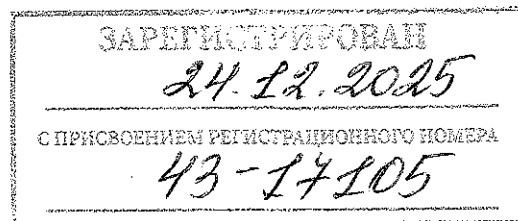 ЗАРЕГИСТРИРОВАН
24.12.2025
С ПРИСВОЕНИЕМ РЕГИСТРАЦИОННОГО НОМЕРА
43-17105